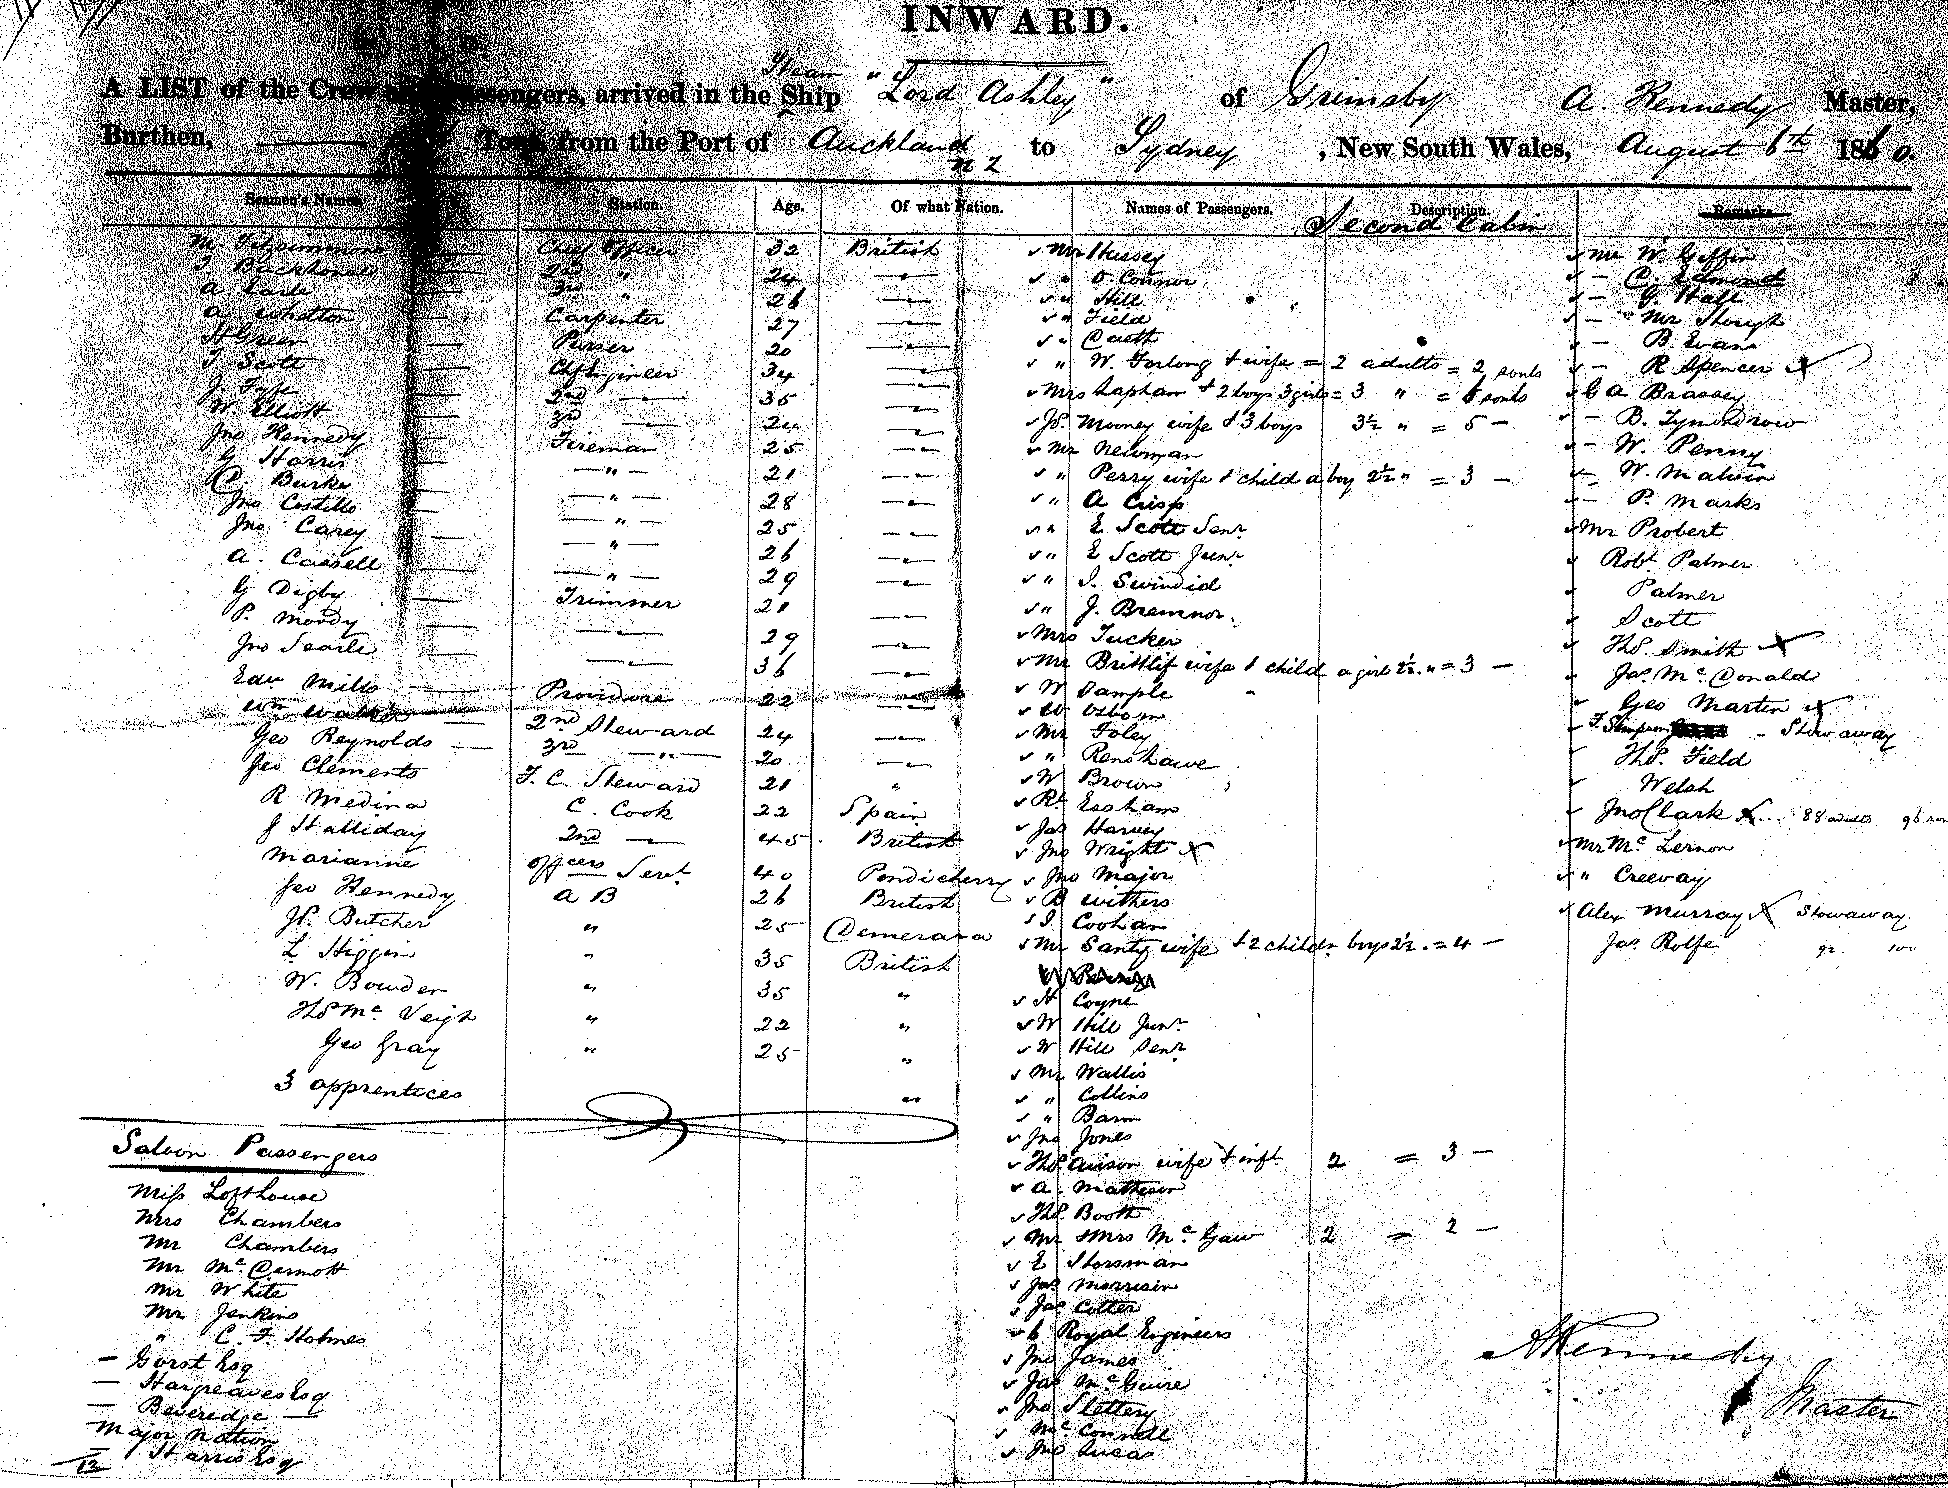 INWARD.
A LIST of the Crew and Passengers, arrived in the Steam Ship "Lord Ashley" of Grimsby A. Kennedy Master,
Burthen, Tons, from the Port of Auckland NZ to Sydney, New South Wales, August 6th 1860.
Seamen's Names. Station. Age. Of what Nation. Names of Passengers. Description. Remarks
Second Cabin
Chief Officer 32 British
2nd " 24 — " —
A Earle 3rd " 26 — " —
Carpenter 27 — " —
H Green Purser 20 — " —
T Scott Ch Engineer 34 — " —
J Tyfe 2nd — 35 — " —
W Elliott 3rd — 24 — " —
Jno Kennedy Fireman 25 — " —
G Harris — " — 21 — " —
P Burke — " — 28 — " —
Jno Costillo — " — 25 — " —
Jno Carey — " — 26 — " —
A. Cassell — " — 29 — " —
G Digby Trimmer 21 — " —
P. Moody — " — 29 — " —
Jno Searle — " — 36 — " —
Edw Mills Providore 22 — " —
Wm Walker 2nd Steward 24 — " —
Geo Reynolds 3rd — " — 20 — " —
Geo Clements F. C. Steward 21 "
R Medina C. Cook 22 Spain
J Halliday 2nd — 45 British
Marianne officers Servt 40 Pondicherry
Geo Kennedy A B 26 British
Js. Butcher " 25 Demerara
L Higgin " 35 British
W. Bowder " 35 "
Ths Mc Veigh " 22 "
Geo Gray " 25 "
3 apprentices "
Saloon Passengers
Miss Lofthouse
Mrs Chambers
Mr Chambers
Mr McDermott
Mr White
Mr Jenkins
" C. F. Holmes
— Gorst Esq
— Hargreaves Esq
— Beveredge —
Major Nation
— Harris Esq
12
Mr Hussey
" O. Connor
" Hill
" Field
"
" W. Forlong & wife = 2 adults = 2 souls
Mrs Lapham & 2 boys 3 girls = 3 " = 6 souls
Js. Mooney wife & 3 boys 3½ " = 5 —
Mr Newman
" Perry wife & child a boy 2½ " = 3 —
" A Crisp
" E Scott Senr
" E Scott Junr
" J. Swindid
" J. Bremnor
Mrs Tucker
Mr wife & child a girl 2½ " = 3 —
W Sample
W Osborn
Mr Foley
" Renshawe
W Brown
Rt Easham
Jas Harvey
Jno Wright X
Jno Major
B Withers
J. Coohan
Mr Santy wife & 2 childn boys 2½ . = 4 —
H Coyne
W Hill Junr
W Hill Senr
Mr Wallis
" Collins
" Barn
Jno Jones
Ths. wife & inft 2 = 3 —
A. Matheson
Ths. Booth
Mr & Mrs McGaw 2 = 2 —
E Storsman
Jas Morrisin
Jas Cotter
6 Royal Engineers
Jno James
Jas McGuire
Jno Slettery
McConnell
Jno Lucas
Mr W. Giffin
— C.
— G. Hall
— " Mr
— B. Evans
— R Spencer X
C A Brassey
— B. Tyndrow
— W. Penny
— W. Malvin
— P. Marks
Mr Probert
Robt Palmer
Palmer
Scott
Ths. Smith X
Jas McDonald
Geo Marten X
T. Simpson - Stowaway
Ths. Field
Welsh
Jno Clark X . . 88 adults 96
Mr McLernon
" Creevay
Alex Murray X Stowaway
Jas Rolfe 92 100
A Kennedy
Master